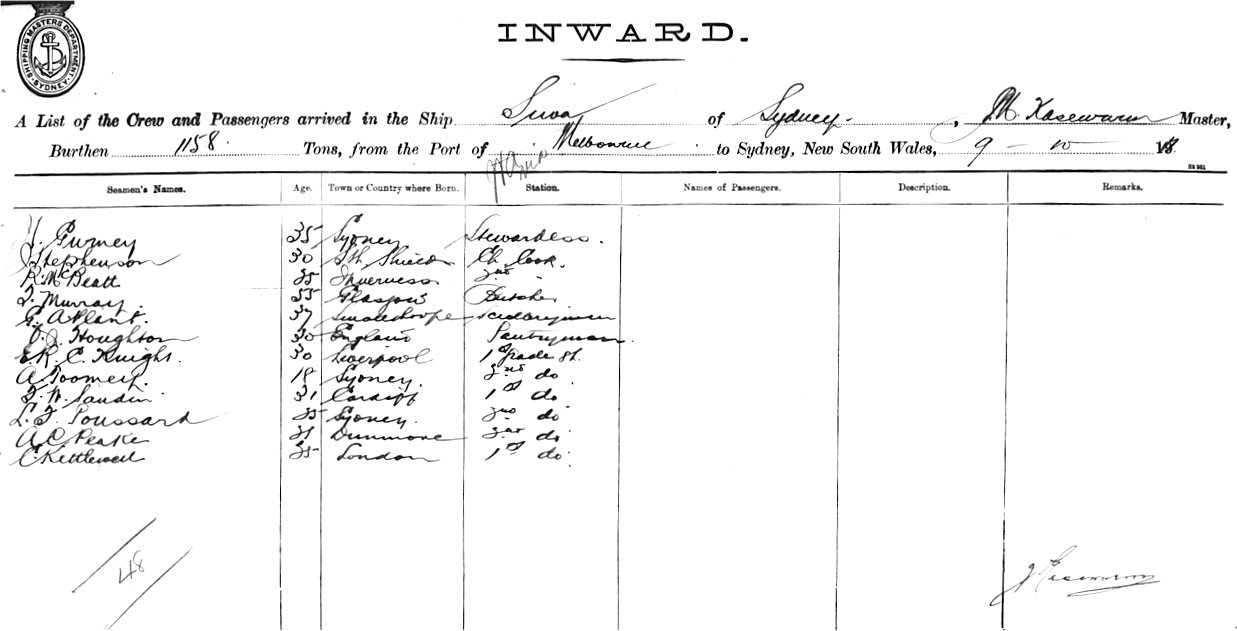 SHIPPING MASTERS DEPARTMENT. SYDNEY
INWARD.
A List of the Crew and Passengers arrived in the Ship Suva of Sydney. , Master,
Burthen 1158. Tons, from the Port of Melbourne to Sydney, New South Wales, 9 - 10
Seamen's Names. Age. Town or Country where Born. Station. Names of Passengers. Description. Remarks.
Gurney 35 Sydney Stewardess.
J Stephenson 30 Sth Shields Ch Cook.
R. McBeatt 35 Inverness 2nd
T. Murray. 55 Glasgow Butcher
G. A Plant. 37
J. Houghton 30 England Pantryman.
E. R. C. Knight. 30 Liverpool 1st Grade St.
A Toomey. 18 Sydney. 2nd do
F. W. 31 Cardiff 1st do
L. F. Poussard 25 Sydney. 2nd do
A C Peake Dunmore 2nd do
C Kettlewell 35 London 1st do.
48